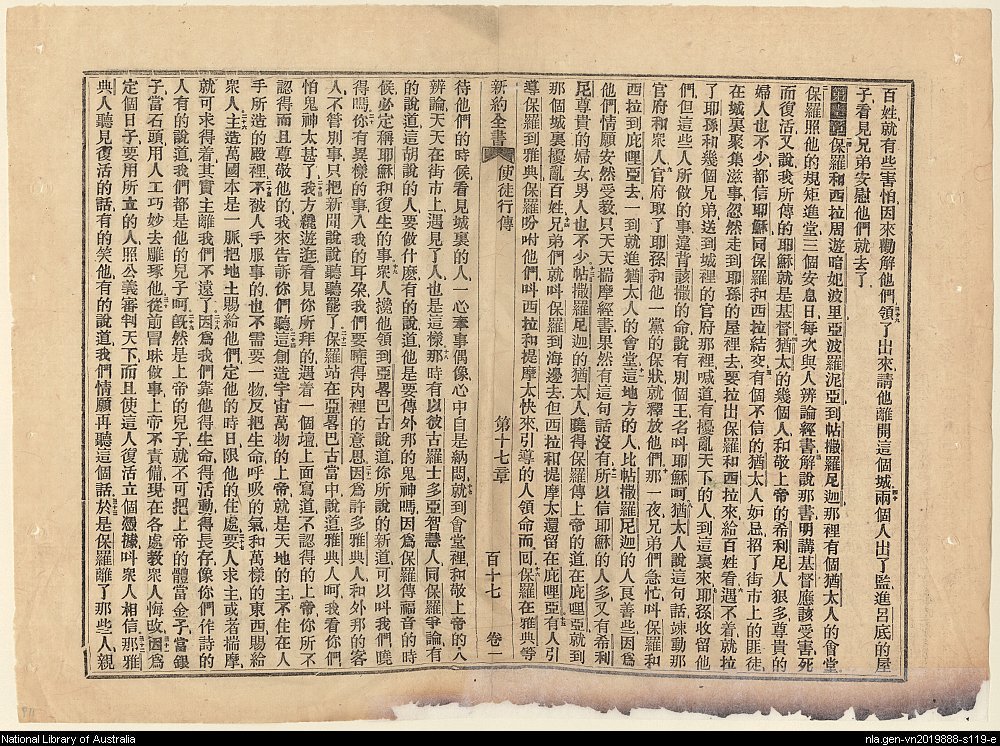 百姓就有些害怕因來勸解他們領了出來請他離開這個城兩個人出了監進呂底的屋
子看見兄弟安慰他們就去了
第十七章保羅和西拉周遊暗妃波里亞波羅泥亞到帖撒羅尼迦那裡有個猶太人的會堂
保羅照他的規矩進堂三個安息日每次與人辨論經書解說那書明講基督應該受害死
而復活又說我所傳的耶穌就是基督猶太的幾個人和敬上帝的希利尼人狠多尊貴的
婦人也不少都信耶穌同保羅和西拉結交有個不信的猶太人妬忌招了街市上的匪徒
在城裏聚集滋事忽然走到耶孫的屋裡去要拉出保羅和西拉來給百姓看遇不着就拉
了耶孫和幾個兄弟送到城裡的官府那裡喊道有擾亂天下的人到這裏來耶孫收留他
們但這些人所做的事違背該撒的命說有別個王名叫耶穌呵猶太人說這句話諫動那
官府和衆人官府取了耶孫和他一黨的保狀就釋放他們那一夜兄弟們急忙叫保羅和
西拉到庇哩亞去一到就進猶太的會堂這地方的人比帖撒羅尼迦的人良善些因爲
他們情願安然受教只天天揣摩經書果然有這句話沒有所以信耶穌的人多又有希利
尼尊貴的婦女男人也不少帖撒羅尼迦的猶太人曉得保羅傳上帝的道在庇哩亞就到
那個城裏擾亂百姓兄弟們就叫保羅到海邊去但西拉和提摩太還留在庇哩亞有人引
導保羅到雅典保羅吩咐他們叫西拉和提摩太快來引導的人領命而回保羅在雅典等
新約全書 使徒行傳 第十七章 百十七 卷一
待他們的時候看見城裏的人一心奉事偶像心中自是納悶就到會堂裡和敬上帝的人
辨論天天在街市上遇見了人也是這樣那時有以彼古羅士多亞智慧人同保羅爭論有
的說道這胡說的人要做什麽有的說道他是要傳外邦的鬼神嗎因爲保羅傳福音的時
候必定稱耶穌和復生的事衆人攙他領到亞畧巴古說道你所說的新道可以叫我們曉
得嗎你有異樣的事入我的耳朶我們要曉得內裡的意思因爲許多雅典人和外邦的客
人不管別事只把新聞說說聽聽罷了保羅站在亞畧巴古當中說道雅典人呵我看你們
怕鬼神太甚了我方纔遊逛看見你所拜的遇着一個壇上面寫道不認得的上帝你所不
認得而且尊敬他的我來告訴你們聽這創造宇宙萬物的上帝就是天地的主不住在人
手所造的殿裡不被人手服事的也不需要一物反把生命呼吸的氣和萬樣的東西賜給
衆人主造萬國本是一脈把地土賜給他們定他的時日限他的住處要人求主或者揣摩
就可求得着其實主離我們不遠了因爲我們靠他得生命得活動得長存像你們作詩的
人有的說道我們都是他的兒子呵旣然是上帝的兒子就不可把上帝的體當金子當銀
子當石頭用人工巧妙去雕琢他從前冒昧做事上帝不責備現在各處教衆人悔改因爲
定個日子要用所立的人照公義審判天下而且使這人復活立個憑據叫衆人相信那雅
典人聽見復活的話有的笑他有的說道我們情願再聽這個話於是保羅離了那些人親
National Library of Australia
nla.gen-vn2019888-s119-e